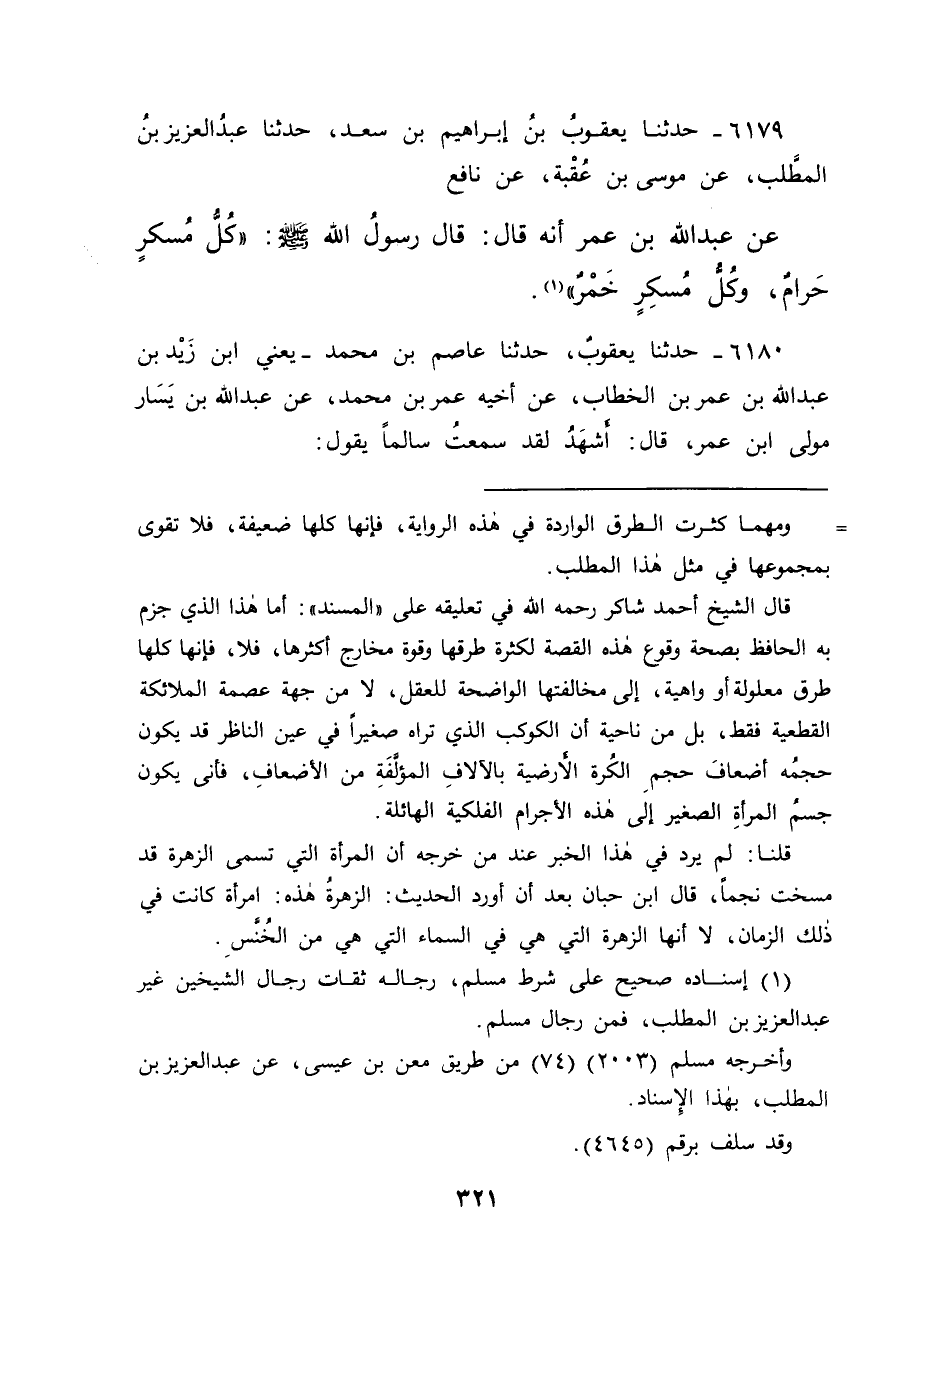 ٦١٧٩ـ حدثنـا يعقـوبُ بنُ إبـراهيم بن سعـد، حدثنا عبدُالعزيز بنُ
المطَّلب، عن موسى بن عُقْبة، عن نافع
عن عبدالله بن عمر أنه قال: قال رسولُ الله ﷺ: «كُلُّ مُسكرٍ
حَرامٌ، وكُلُّ مُسكِرٍ خَمْرٌ»(١).
٦١٨٠ـ حدثنا يعقوبُ، حدثنا عاصم بن محمد ـيعني ابن زَيْد بن
عبدالله بن عمر بن الخطاب، عن أخيه عمر بن محمد، عن عبدالله بن يَسَار
مولى ابن عمر، قال: أَشهَدُ لقد سمعتُ سالماً يقول:
= ومهمـا كثـرت الـطرق الواردة في هٰذه الرواية، فإنها كلها ضعيفة، فلا تقوى
بمجموعها في مثل هٰذا المطلب.
قال الشيخ أحمد شاكر رحمه الله في تعليقه على «المسند»: أما هٰذا الذي جزم
به الحافظ بصحة وقوع هٰذه القصة لكثرة طرقها وقوة مخارج أكثرها، فلا، فإنها كلها
طرق معلولة أو واهية، إلى مخالفتها الواضحة للعقل، لا من جهة عصمة الملائكة
القطعية فقط، بل من ناحية أن الكوكب الذي تراه صغيراً في عين الناظر قد يكون
حجمُه أضعافَ حجمِ الكُرة الأَرضية بالآلافِ المؤلَّفَةِ من الأضعافِ، فأنى يكون
جسمُ المرأةِ الصغير إلى هٰذه الأجرام الفلكية الهائلة.
قلنـا: لم يرد في هٰذا الخبر عند من خرجه أن المرأة التي تسمى الزهرة قد
مسخت نجماً، قال ابن حبان بعد أن أورد الحديث: الزهرةُ هٰذه: امرأة كانت في
ذٰلك الزمان، لا أنها الزهرة التي هي في السماء التي هي من الخُنَّسِ.
(١) إسنـــاده صحيح على شرط مسلم، رجـالـه ثقـات رجـال الشيخين غير
عبدالعزيز بن المطلب، فمن رجال مسلم.
وأخـرجه مسلم (٢٠٠٣) (٧٤) من طريق معن بن عيسى، عن عبدالعزيز بن
المطلب، بهٰذا الإِسناد.
وقد سلف برقم (٤٦٤٥).
٣٢١